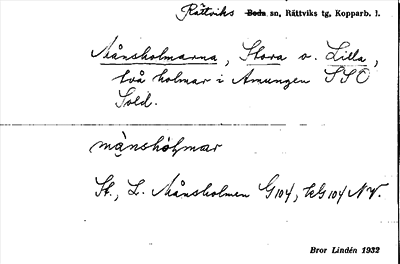 Rättviks Boda sn, Rättviks tg, Kopparb. l.
Månsholmarna, Stora o. Lilla,
två holmar i Amungen SSO
Sold.
månshòlmar
St., L. Månsholmen G 104, NV.
Bror Lindén 1932